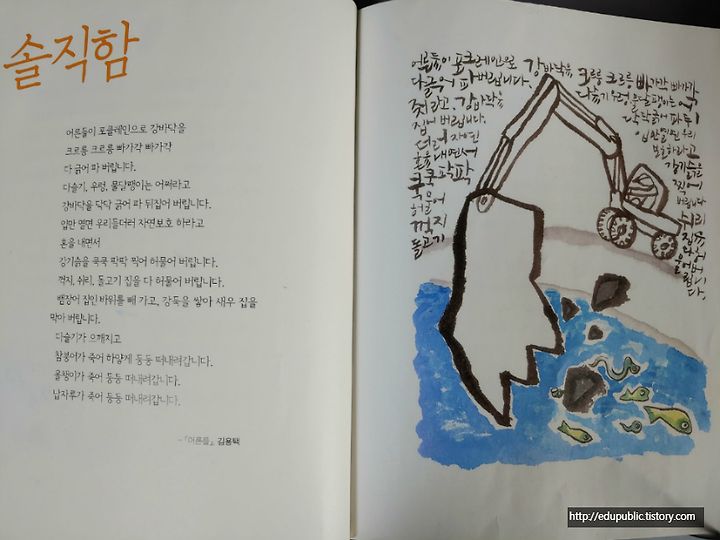 솔직함
어른들이 포클레인으로 강바닥을
크르릉 크르릉 빠가각 빠가각
다 긁어 파 버립니다.
다슬기, 우렁, 물달팽이는 어쩌라고
강바닥을 닥닥 긁어 파 뒤집어 버립니다.
입만 열면 우리들더러 자연보호 하라고
혼을 내면서
강기슭을 쿡쿡 팍팍 찍어 허물어 버립니다.
꺽지, 쉬리, 돌고기 집을 다 허물어 버립니다.
뱀장어 집인 바위를 빼 가고, 강둑을 쌓아 새우 집을
막아 버립니다.
다슬기가 으깨지고
참붕어가 죽어 하얗게 둥둥 떠내려갑니다.
올챙이가 죽어 둥둥 떠내려갑니다.
납자루가 죽어 둥둥 떠내려갑니다.
-「어른들」 김용택
어른들이 포크레인으로 강바닥을 크르릉 크르릉 빠가각 빠가각
다 긁어 파 버립니다. 다슬기 우렁 물달팽이는 어
쩌라고, 강바닥을 닥닥 긁어 파 뒤
집어 버립니다. 입만 열면 우리
더러 자연 보호하라고
혼을 내면서 강기슭을
쿡쿡 팍팍 찍어
허물어 버립니다
꺽지 쉬리
돌고기 집을
http://edupublic.tistory.com